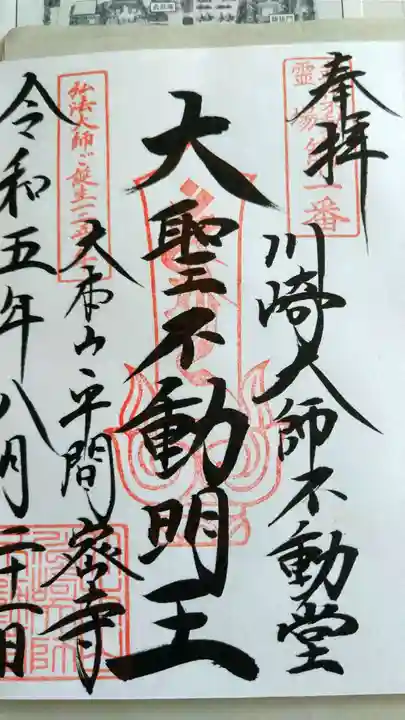 奉拝
川崎大師不動堂
大聖不動明王
大本山平間寺
令和五年八月二十一日
霊場
第一番
弘法大師ご誕生